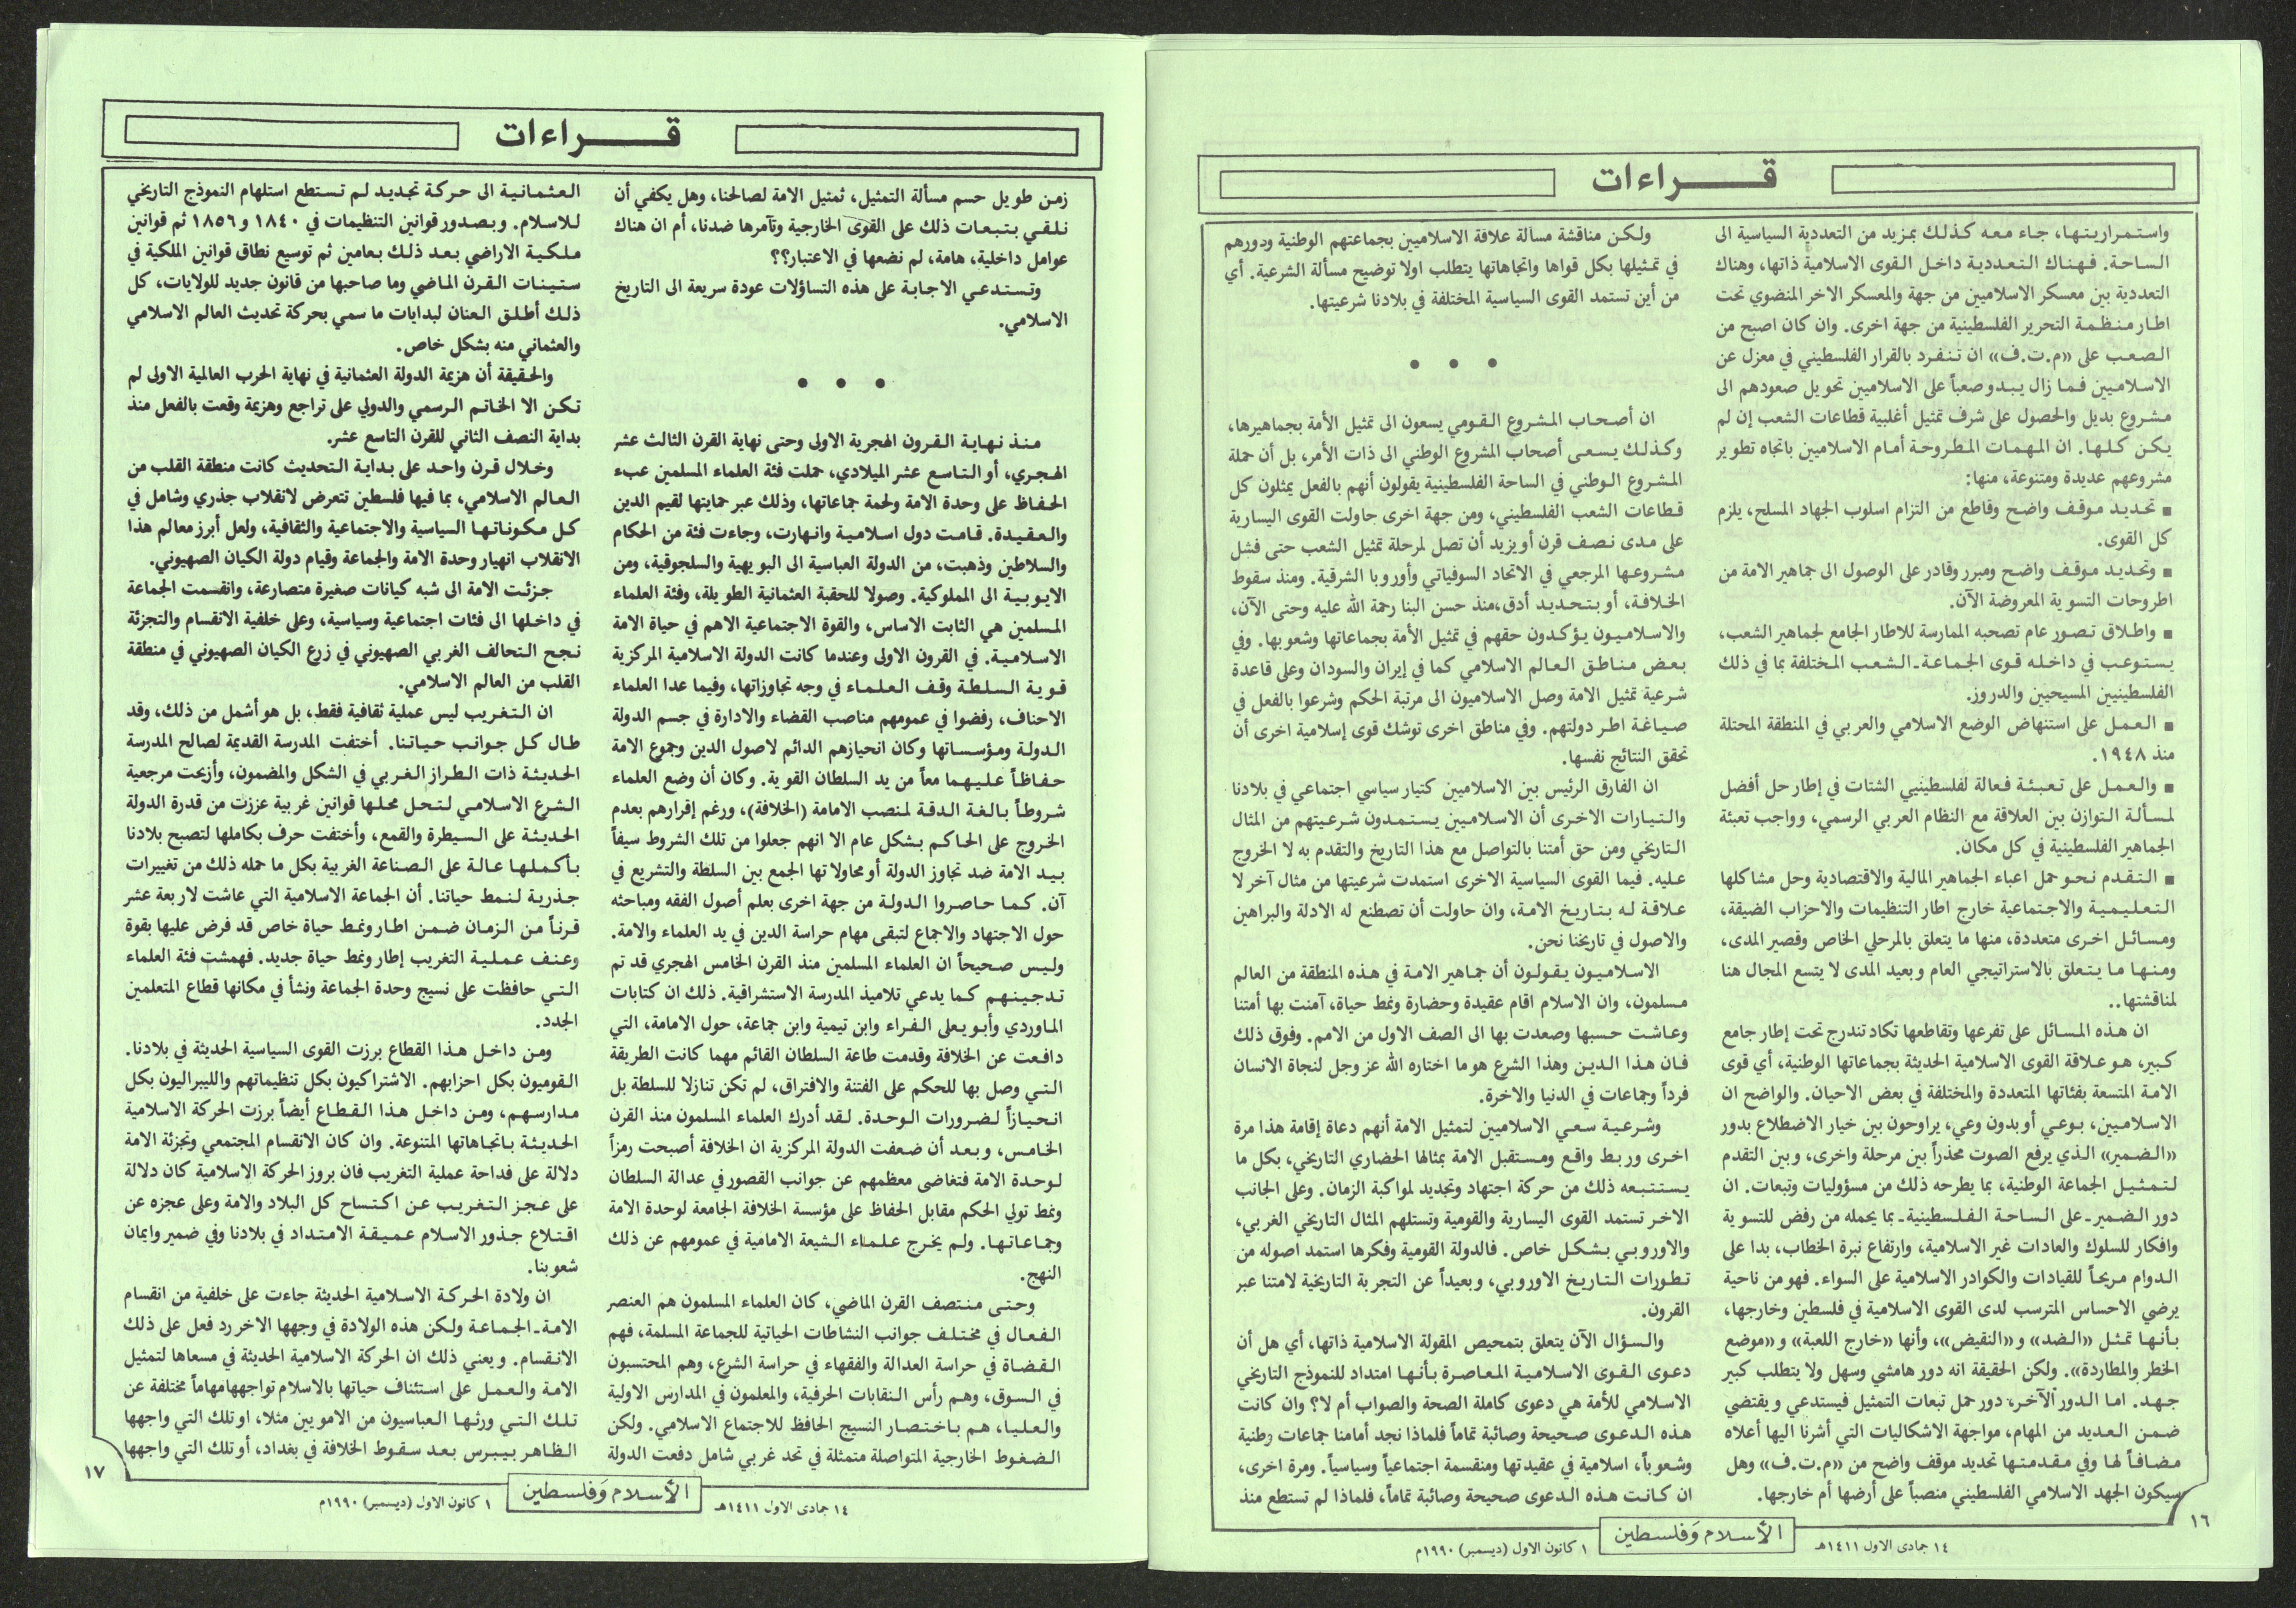 قـــراءات
واستمراريتها، جاء معه كذلك بمزيد من التعددية السياسية الى
الساحة. فهناك التعددية داخل القوى الاسلامية ذاتها، وهناك
التعددية بين معسكر الاسلاميين من جهة والمعسكر الاخر المنضوي تحت
اطار منظمة التحرير الفلسطينية من جهة اخرى. وان كان اصبح من
الصعب على «م.ت.ف» ان تنفرد بالقرار الفلسطيني في معزل عن
الاسلاميين فما زال يبدو صعباً على الاسلاميين تحويل صعودهم الى
مشروع بديل والحصول على شرف تمثيل أغلبية قطاعات الشعب إن لم
يكن كلها. ان المهمات المطروحة أمام الاسلاميين باتجاه تطوير
مشروعهم عديدة ومتنوعة، منها:
■ تحديد موقف واضح وقاطع من التزام اسلوب الجهاد المسلح، يلزم
كل القوى.
■ وتحديد موقف واضح ومبرر وقادر على الوصول الى جماهير الامة من
اطروحات التسوية المعروضة الآن.
■ واطلاق تصور عام تصحبه الممارسة للاطار الجامع لجماهير الشعب،
يستوعب في داخله قوى الجماعة ـ الشعب المختلفة بما في ذلك
الفلسطينيين المسيحيين والدروز.
■ العمل على استنهاض الوضع الاسلامي والعربي في المنطقة المحتلة
منذ ١٩٤٨.
■ والعمل على تعبئة فعالة لفلسطينيي الشتات في إطار حل أفضل
لمسألة التوازن بين العلاقة مع النظام العربي الرسمي، وواجب تعبئة
الجماهير الفلسطينية في كل مكان.
■ التقدم نحو حمل اعباء الجماهير المالية والاقتصادية وحل مشاكلها
التعليمية والاجتماعية خارج اطار التنظيمات والاحزاب الضيقة،
ومسائل اخرى متعددة، منها ما يتعلق بالمرحلي الخاص وقصير المدى،
ومنها ما يتعلق بالاستراتيجي العام وبعيد المدى لا يتسع المجال هنا
لمناقشتها..
ان هذه المسائل على تفرعها وتقاطعها تكاد تندرج تحت إطار جامع
كبير، هو علاقة القوى الاسلامية الحديثة بجماعاتها الوطنية، أي قوى
الامة المتسعة بفئاتها المتعددة والمختلفة في بعض الاحيان. والواضح ان
الاسلاميين، بوعي أو بدون وعي، يراوحون بين خيار الاضطلاع بدور
«الضمير» الذي يرفع الصوت محذراً بين مرحلة واخرى، وبين التقدم
لتمثيل الجماعة الوطنية، بما يطرحه ذلك من مسؤوليات وتبعات. ان
دور الضمير ـ على الساحة الفلسطينية ـ بما يحمله من رفض للتسوية
وافكار للسلوك والعادات غير الاسلامية، وارتفاع نبرة الخطاب، بدا على
الدوام مريحاً للقيادات والكوادر الاسلامية على السواء. فهو من ناحية
يرضي الاحساس المترسب لدى القوى الاسلامية في فلسطين وخارجها،
بأنها تمثل «الضد» و«النقيض»، وأنها «خارج اللعبة» و«موضع
الخطر والمطاردة». ولكن الحقيقة انه دور هامشي وسهل ولا يتطلب كبير
جهد. اما الدور الآخر، دور حمل تبعات التمثيل فيستدعي ويقتضي
ضمن العديد من المهام، مواجهة الاشكاليات التي أشرنا اليها أعلاه
مضافاً لها وفي مقدمتها تحديد موقف واضح من «م.ت.ف» وهل
سيكون الجهد الاسلامي الفلسطيني منصباً على أرضها أم خارجها.
ولكن مناقشة مسألة علاقة الاسلاميين بجماعتهم الوطنية ودورهم
في تمثيلها بكل قواها واتجاهاتها يتطلب اولا توضيح مسألة الشرعية. أي
من أين تستمد القوى السياسية المختلفة في بلادنا شرعيتها.
● ● ●
ان أصحاب المشروع القومي يسعون الى تمثيل الأمة بجماهيرها،
وكذلك يسعى أصحاب المشروع الوطني الى ذات الأمر، بل أن حملة
المشروع الوطني في الساحة الفلسطينية يقولون أنهم بالفعل يمثلون كل
قطاعات الشعب الفلسطيني، ومن جهة اخرى حاولت القوى اليسارية
على مدى نصف قرن أو يزيد أن تصل لمرحلة تمثيل الشعب حتى فشل
مشروعها المرجعي في الاتحاد السوفياتي وأوروبا الشرقية. ومنذ سقوط
الخلافة، أو بتحديد أدق،منذ حسن البنا رحمة الله عليه وحتى الآن،
والاسلاميون يؤكدون حقهم في تمثيل الأمة بجماعاتها وشعوبها. وفي
بعض مناطق العالم الاسلامي كما في إيران والسودان وعلى قاعدة
شرعية تمثيل الامة وصل الاسلاميون الى مرتبة الحكم وشرعوا بالفعل في
صياغة اطر دولتهم. وفي مناطق اخرى توشك قوى إسلامية اخرى أن
تحقق النتائج نفسها.
ان الفارق الرئيس بين الاسلاميين كتيار سياسي اجتماعي في بلادنا
والتيارات الاخرى أن الاسلاميين يستمدون شرعيتهم من المثال
التاريخي ومن حق أمتنا بالتواصل مع هذا التاريخ والتقدم به لا الخروج
عليه. فيما القوى السياسية الاخرى استمدت شرعيتها من مثال آخر لا
علاقة له بتاريخ الامة، وان حاولت أن تصطنع له الادلة والبراهين
والاصول في تاريخنا نحن.
الاسلاميون يقولون أن جماهير الامة في هذه المنطقة من العالم
مسلمون، وان الاسلام اقام عقيدة وحضارة ونمط حياة، آمنت بها أمتنا
وعاشت حسبها وصعدت بها الى الصف الاول من الامم. وفوق ذلك
فان هذا الدين وهذا الشرع هو ما اختاره الله عز وجل لنجاة الانسان
فرداً وجماعات في الدنيا والاخرة.
وشرعية سعي الاسلاميين لتمثيل الامة أنهم دعاة إقامة هذا مرة
اخرى وربط واقع ومستقبل الامة بمثالها الحضاري التاريخي، بكل ما
يستتبعه ذلك من حركة اجتهاد وتجديد لمواكبة الزمان. وعلى الجانب
الاخر تستمد القوى اليسارية والقومية وتستلهم المثال التاريخي الغربي،
والاوروبي بشكل خاص. فالدولة القومية وفكرها استمد اصوله من
تطورات التاريخ الاوروبي، وبعيداً عن التجربة التاريخية لامتنا عبر
القرون.
والسؤال الآن يتعلق بتمحيص المقولة الاسلامية ذاتها، أي هل أن
دعوى القوى الاسلامية المعاصرة بأنها امتداد للنموذج التاريخي
الاسلامي للأمة هي دعوى كاملة الصحة والصواب أم لا؟ وان كانت
هذه الدعوى صحيحة وصائبة تماماً فلماذا نجد أمامنا جماعات وطنية
وشعوباً، اسلامية في عقيدتها ومنقسمة اجتماعياً وسياسياً. ومرة اخرى،
ان كانت هذه الدعوى صحيحة وصائبة تماماً، فلماذا لم تستطع منذ
١٦
١٤ جمادى الاول ١٤١١هـ
الأسلام وَفلسطين
١ كانون الاول (ديسمبر) ١٩٩٠م
قـــراءات
زمن طويل حسم مسألة التمثيل، تمثيل الامة لصالحنا، وهل يكفي أن
نلقي بتبعات ذلك على القوى الخارجية وتآمرها ضدنا، أم ان هناك
عوامل داخلية، هامة، لم نضعها في الاعتبار؟؟
وتستدعي الاجابة على هذه التساؤلات عودة سريعة الى التاريخ
الاسلامي.
● ● ●
منذ نهاية القرون الهجرية الاولى وحتى نهاية القرن الثالث عشر
الهجري، أو التاسع عشر الميلادي، حملت فئة العلماء المسلمين عبء
الحفاظ على وحدة الامة ولحمة جماعاتها، وذلك عبر حمايتها لقيم الدين
والعقيدة. قامت دول اسلامية وانهارت، وجاءت فئة من الحكام
والسلاطين وذهبت، من الدولة العباسية الى البويهية والسلجوقية، ومن
الايوبية الى المملوكية. وصولا للحقبة العثمانية الطويلة، وفئة العلماء
المسلمين هي الثابت الاساس، والقوة الاجتماعية الاهم في حياة الامة
الاسلامية. في القرون الاولى وعندما كانت الدولة الاسلامية المركزية
قوية السلطة وقف العلماء في وجه تجاوزاتها، وفيما عدا العلماء
الاحناف، رفضوا في عمومهم مناصب القضاء والادارة في جسم الدولة
الدولة ومؤسساتها وكان انحيازهم الدائم لاصول الدين وجموع الامة
حفاظاً عليهما معاً من يد السلطان القوية. وكان أن وضع العلماء
شروطاً بالغة الدقة لمنصب الامامة (الخلافة)، ورغم إقرارهم بعدم
الخروج على الحاكم بشكل عام الا انهم جعلوا من تلك الشروط سيفاً
بيد الامة ضد تجاوز الدولة أو محاولاتها الجمع بين السلطة والتشريع في
آن. كما حاصروا الدولة من جهة اخرى بعلم أصول الفقه ومباحثه
حول الاجتهاد والاجماع لتبقى مهام حراسة الدين في يد العلماء والامة.
وليس صحيحاً ان العلماء المسلمين منذ القرن الخامس الهجري قد تم
تدجينهم كما يدعي تلاميذ المدرسة الاستشراقية. ذلك ان كتابات
الماوردي وأبو يعلى الفراء وابن تيمية وابن جماعة، حول الامامة، التي
دافعت عن الخلافة وقدمت طاعة السلطان القائم مهما كانت الطريقة
التي وصل بها للحكم على الفتنة والافتراق، لم تكن تنازلا للسلطة بل
انحيازاً لضرورات الوحدة. لقد أدرك العلماء المسلمون منذ القرن
الخامس، وبعد أن ضعفت الدولة المركزية ان الخلافة أصبحت رمزاً
لوحدة الامة فتغاضى معظمهم عن جوانب القصور في عدالة السلطان
ونمط تولي الحكم مقابل الحفاظ على مؤسسة الخلافة الجامعة لوحدة الامة
وجماعاتها. ولم يخرج علماء الشيعة الامامية في عمومهم عن ذلك
النهج.
وحتى منتصف القرن الماضي، كان العلماء المسلمون هم العنصر
الفعال في مختلف جوانب النشاطات الحياتية للجماعة المسلمة، فهم
القضاة في حراسة العدالة والفقهاء في حراسة الشرع، وهم المحتسبون
في السوق، وهم رأس النقابات الحرفية، والمعلمون في المدارس الاولية
والعليا، هم باختصار النسيج الحافظ للاجتماع الاسلامي. ولكن
الضغوط الخارجية المتواصلة متمثلة في تحد غربي شامل دفعت الدولة
العثمانية الى حركة تجديد لم تستطع استلهام النموذج التاريخي
للاسلام. وبصدور قوانين التنظيمات في ١٨٤٠ و١٨٥٦ ثم قوانين
ملكية الاراضي بعد ذلك بعامين ثم توسيع نطاق قوانين الملكية في
ستينات القرن الماضي وما صاحبها من قانون جديد للولايات، كل
ذلك أطلق العنان لبدايات ما سمي بحركة تحديث العالم الاسلامي
والعثماني منه بشكل خاص.
والحقيقة أن هزيمة الدولة العثمانية في نهاية الحرب العالمية الاولى لم
تكن الا الخاتم الرسمي والدولي على تراجع وهزيمة وقعت بالفعل منذ
بداية النصف الثاني للقرن التاسع عشر.
وخلال قرن واحد على بداية التحديث كانت منطقة القلب من
العالم الاسلامي، بما فيها فلسطين تتعرض لانقلاب جذري وشامل في
كل مكوناتها السياسية والاجتماعية والثقافية، ولعل أبرز معالم هذا
الانقلاب انهيار وحدة الامة والجماعة وقيام دولة الكيان الصهيوني.
جزئت الامة الى شبه كيانات صغيرة متصارعة، وانقسمت الجماعة
في داخلها الى فئات اجتماعية وسياسية، وعلى خلفية الانقسام والتجزئة
نجح التحالف الغربي الصهيوني في زرع الكيان الصهيوني في منطقة
القلب من العالم الاسلامي.
ان التغريب ليس عملية ثقافية فقط، بل هو أشمل من ذلك، وقد
طال كل جوانب حياتنا. أختفت المدرسة القديمة لصالح المدرسة
الحديثة ذات الطراز الغربي في الشكل والمضمون، وأزيحت مرجعية
الشرع الاسلامي لتحل محلها قوانين غربية عززت من قدرة الدولة
الحديثة على السيطرة والقمع، وأختفت حرف بكاملها لتصبح بلادنا
بأكملها عالة على الصناعة الغربية بكل ما حمله ذلك من تغييرات
جذرية لنمط حياتنا. أن الجماعة الاسلامية التي عاشت لاربعة عشر
قرناً من الزمان ضمن اطار ونمط حياة خاص قد فرض عليها بقوة
وعنف عملية التغريب إطار ونمط حياة جديد. فهمشت فئة العلماء
التي حافظت على نسيج وحدة الجماعة ونشأ في مكانها قطاع المتعلمين
الجدد.
ومن داخل هذا القطاع برزت القوى السياسية الحديثة في بلادنا.
القوميون بكل احزابهم. الاشتراكيون بكل تنظيماتهم والليبراليون بكل
مدارسهم، ومن داخل هذا القطاع أيضاً برزت الحركة الاسلامية
الحديثة باتجاهاتها المتنوعة. وان كان الانقسام المجتمعي وتجزئة الامة
دلالة على فداحة عملية التغريب فان بروز الحركة الإسلامية كان دلالة
على عجز التغريب عن اكتساح كل البلاد والامة وعلى عجزه عن
اقتلاع جذور الاسلام عميقة الامتداد في بلادنا وفي ضمير وايمان
شعوبنا.
ان ولادة الحركة الاسلامية الحديثة جاءت على خلفية من انقسام
الامة ـ الجماعة ولكن هذه الولادة في وجهها الاخر رد فعل على ذلك
الانقسام. ويعني ذلك ان الحركة الاسلامية الحديثة في مسعاها لتمثيل
الامة والعمل على استئناف حياتها بالاسلام تواجههامهاماً مختلفة عن
تلك التي ورثها العباسيون من الامويين مثلا، او تلك التي واجهها
الظاهر بيبرس بعد سقوط الخلافة في بغداد، أو تلك التي واجهها
١٤ جمادى الاول ١٤١١هـ
الأسلام وَفلسطين
١ كانون الاول (ديسمبر) ١٩٩٠م
١٧